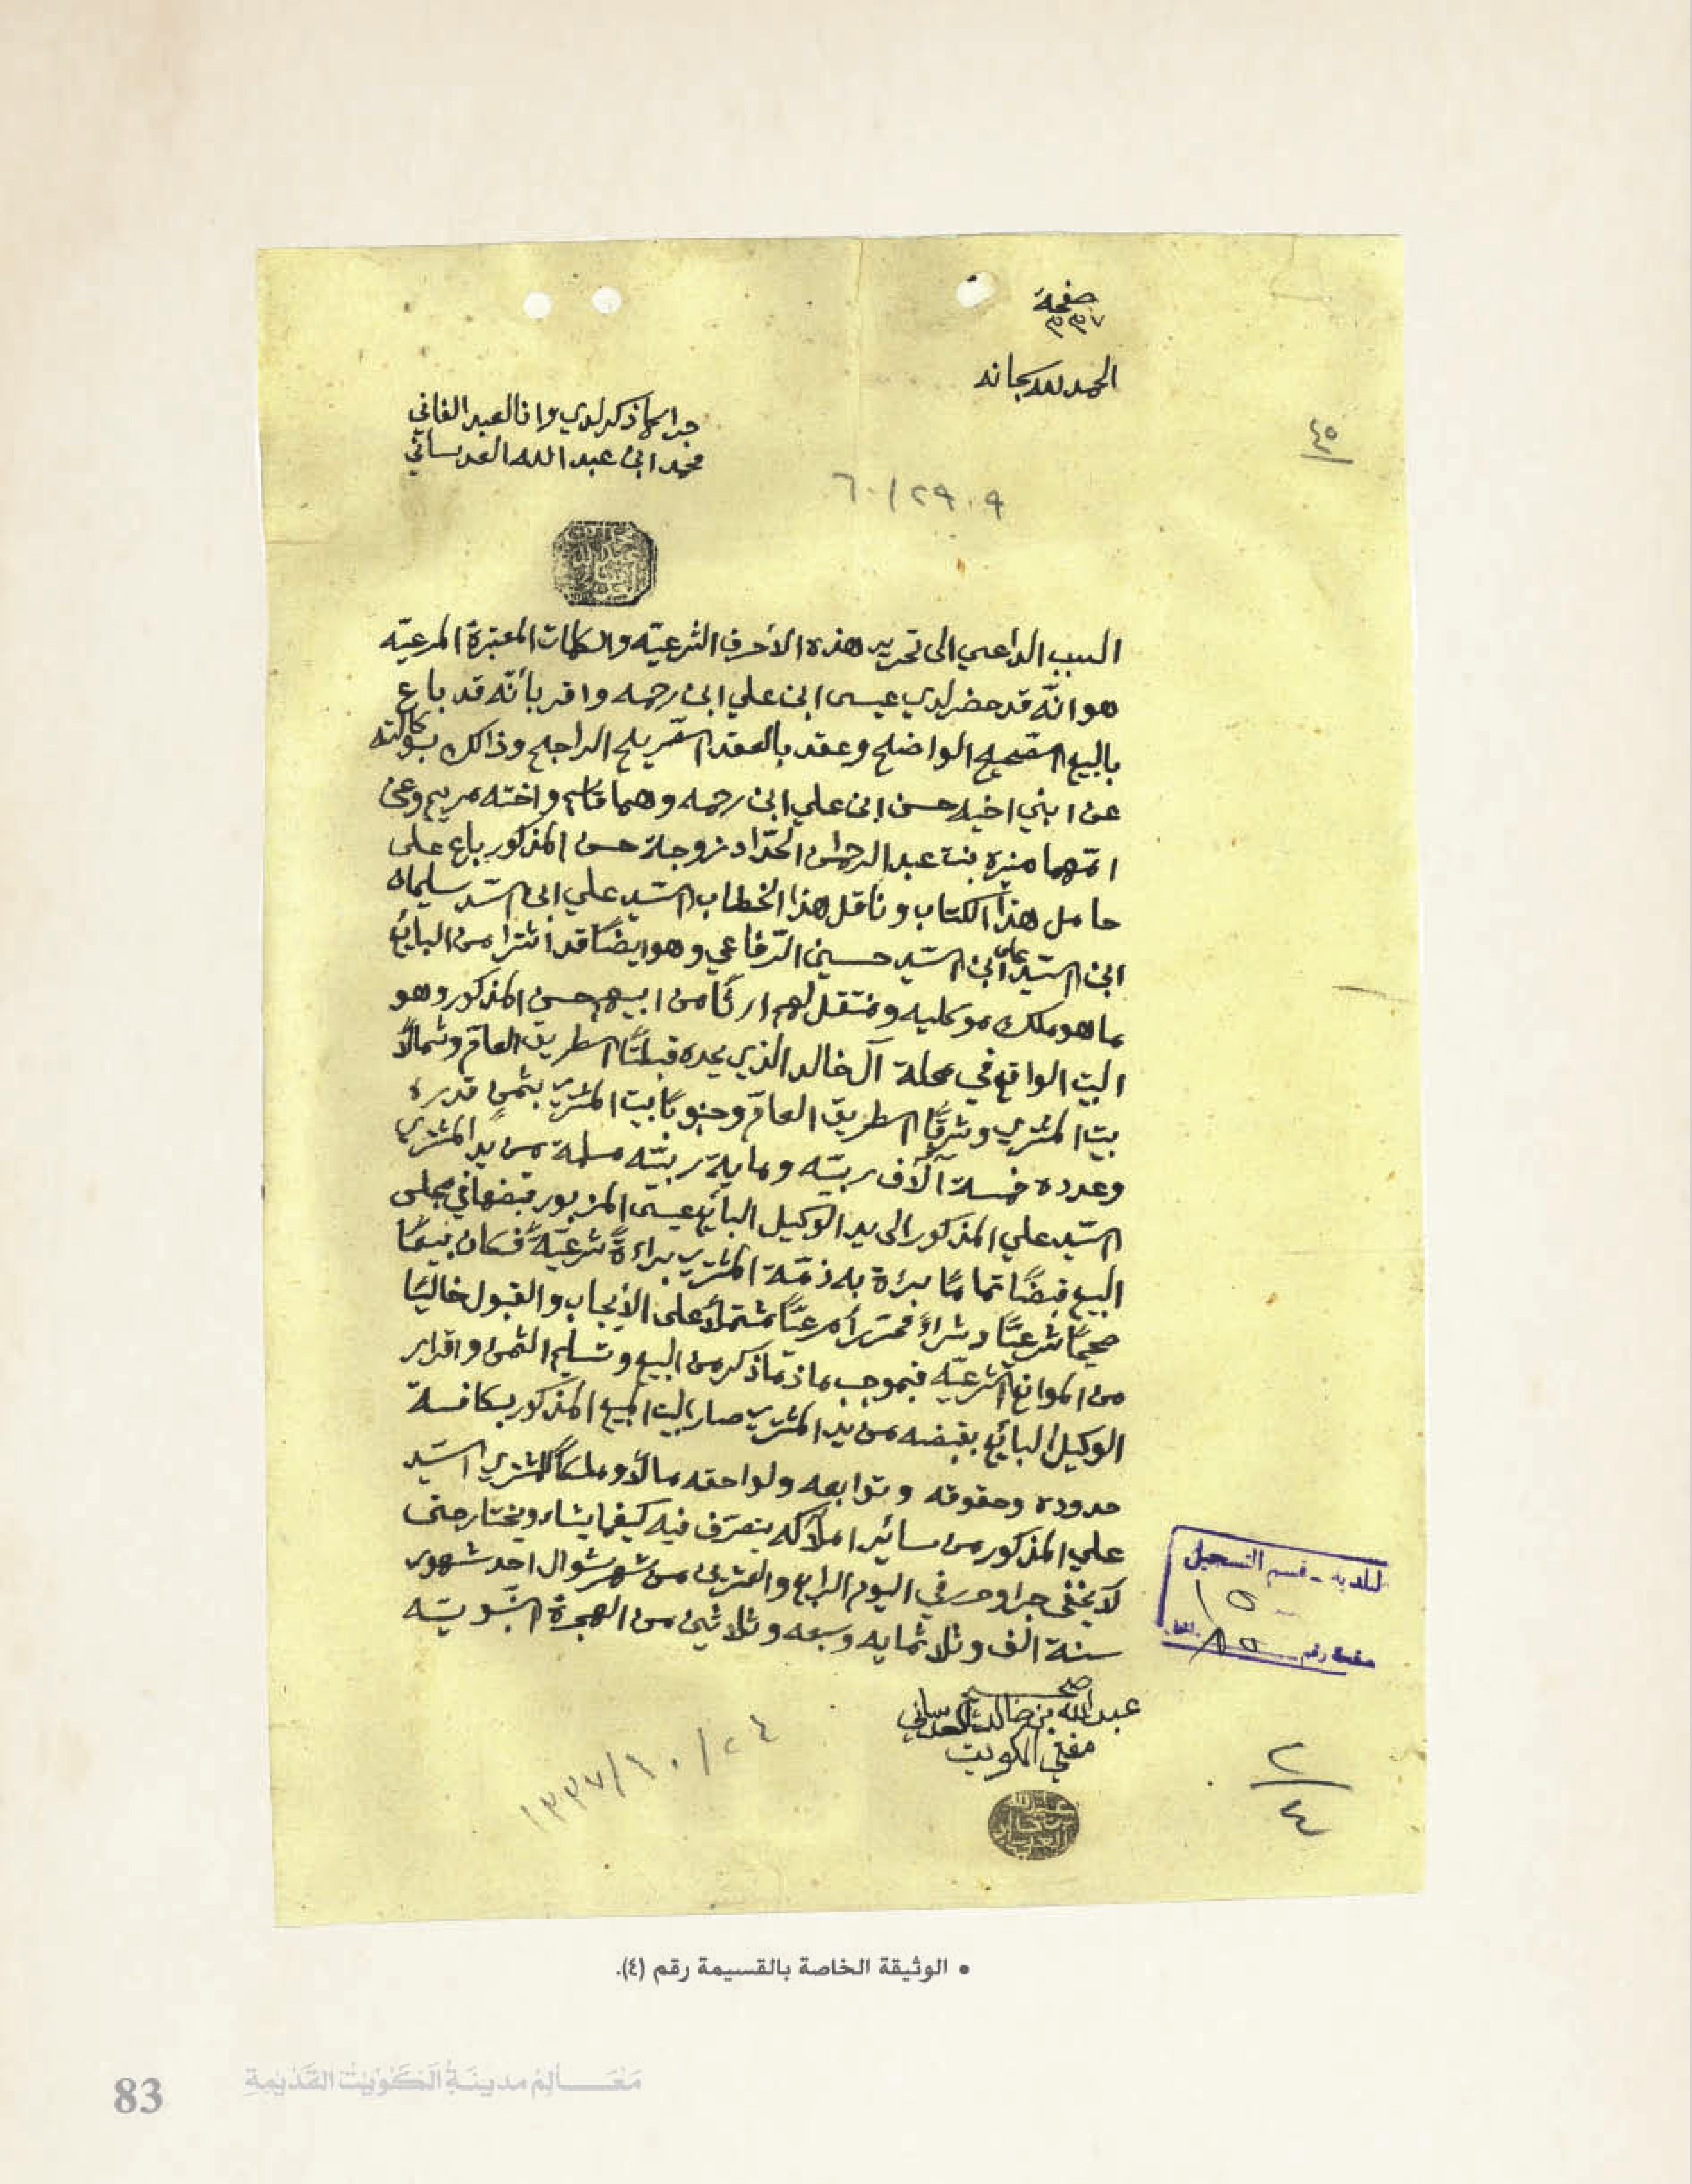 صفحة
٣٣٧
الحمد لله سبحانه
جرا كما ذكر لدي وانا العبد الفاني
محمد ابن عبد الله العدساني
٤٥
٦٠/٢٩٠٩
السبب الداعي الى تحرير هذه الأحرف الشرعيّه والكلمات المعتبرة المرعيّه
هو انّه قد حضر لدي عيسى ابن علي ابن رحمه واقر بأنّه قد باع
بالبيع الصّحيح الواضح وعقد بالعقد الصّريح الراجح وذالك بوكالته
عن ابني اخيه حسن ابن علي ابن رحمه وهما قاسم واخته مريم وعن
امّهما منيره بنت عبد الرحمٰن الحدّاد زوجة حسن المذكور باع على
حامل هذا الكتاب وناقل هذا الخطاب السّيد علي ابن السّيد سليمان
ابن السّيد علي ابن السّيد حسين الرّفاعي وهو ايضًا قد اشترا من البائع
ما هو ملك موكليه ومنتقل لهم ارثًا من ابيهم حسن المذكور وهو
البيت الواقع في محلة آل خالد الذي يحده قبلتًا الطريق العامّ وشمالًا
بيت المشتري وشرقًا الطريق العامّ وجنوبًا بيت المشتري بثمنٍ قدره
وعدده خمسة آلآف ربيّه وماية ربيّه مسلمة من يد المشتري
السّيد علي المذكور الى يد الوكيل البائع عيسى المزبور قبضها في مجلس
البيع قبضًا تمامًا برئة به ذمّة المشتري براءةً شرعيّةً فكان بيعًا
صحيحًا شرعيًّا وشراءً محرّرًا مرعيًّا مشتملًا على الأيجاب والقبول خاليًا
من الموانع الشرعيّه فبموجب ماذكر من البيع وتسليم الثمن واقرار
الوكيل البائع بقبضه من يد المشتري صار البيت المبيع المذكور بكافة
حدوده وحقوقه وتوابعه ولواحقه مالًا وملكًا للمشتري السّيد
علي المذكور من سائير املاكه يتصرّف فيه كيفما يشاء ويختار حتى
لا يخفى جرا وحرر في اليوم الرابع والعشرين من شهر شوال احد شهور
سنة الف وثلاثمايه وسبعه وثلاثين من الهجرة النّبويّه
البلدية - قسم التسجيل
صفحة رقم
صحيح
عبد الله بن خالد العدساني
مفتي الكويت
١٣٣٧/١٠/٢٤
٢
٤
• الوثيقة الخاصة بالقسيمة رقم (٤).
مَعَـالِمُ مدينَةِ الكُوَيْت القَدْيمةِ
83